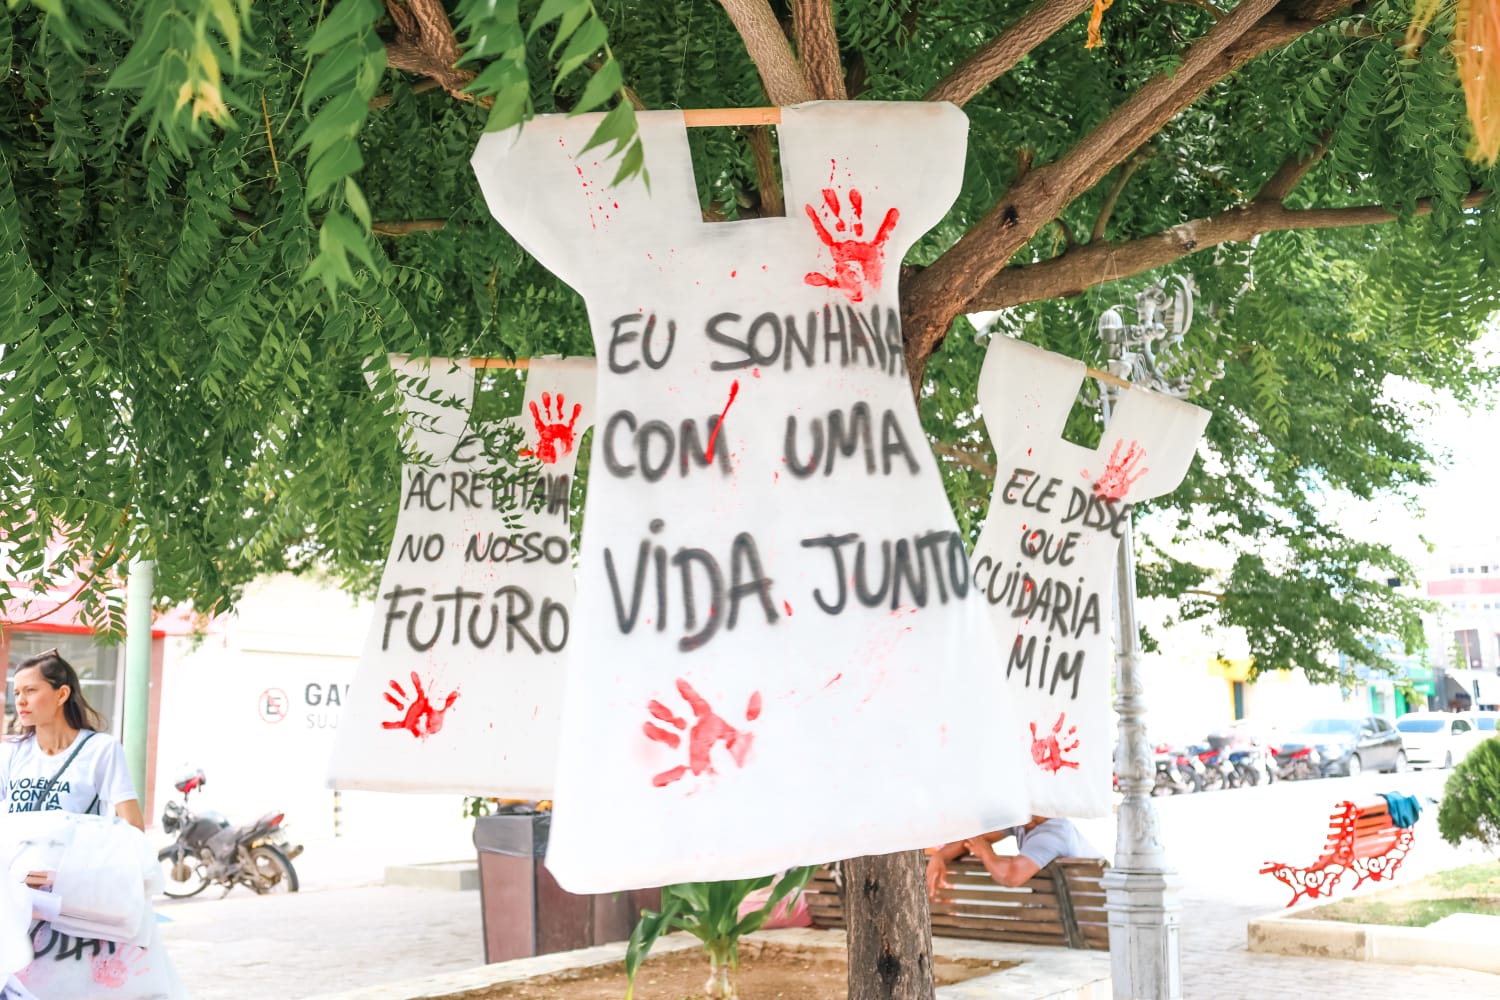 EU SONHAVA
COM UMA
VIDA JUNTO
EU
ACREDITAVA
NO NOSSO
FUTURO
ELE DISSE
QUE
CUIDARIA
MIM
VIOLÊNCIA
CONTRA
A MULHER
E